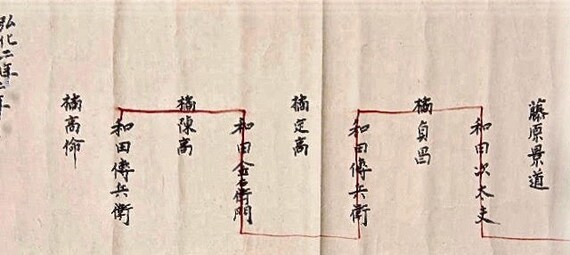 藤原景道
和田次太夫
橘貞昌
和田傳兵衛
橘定高
和田金衛門
橘陳高
和田傳兵衛
橘高
弘化二年